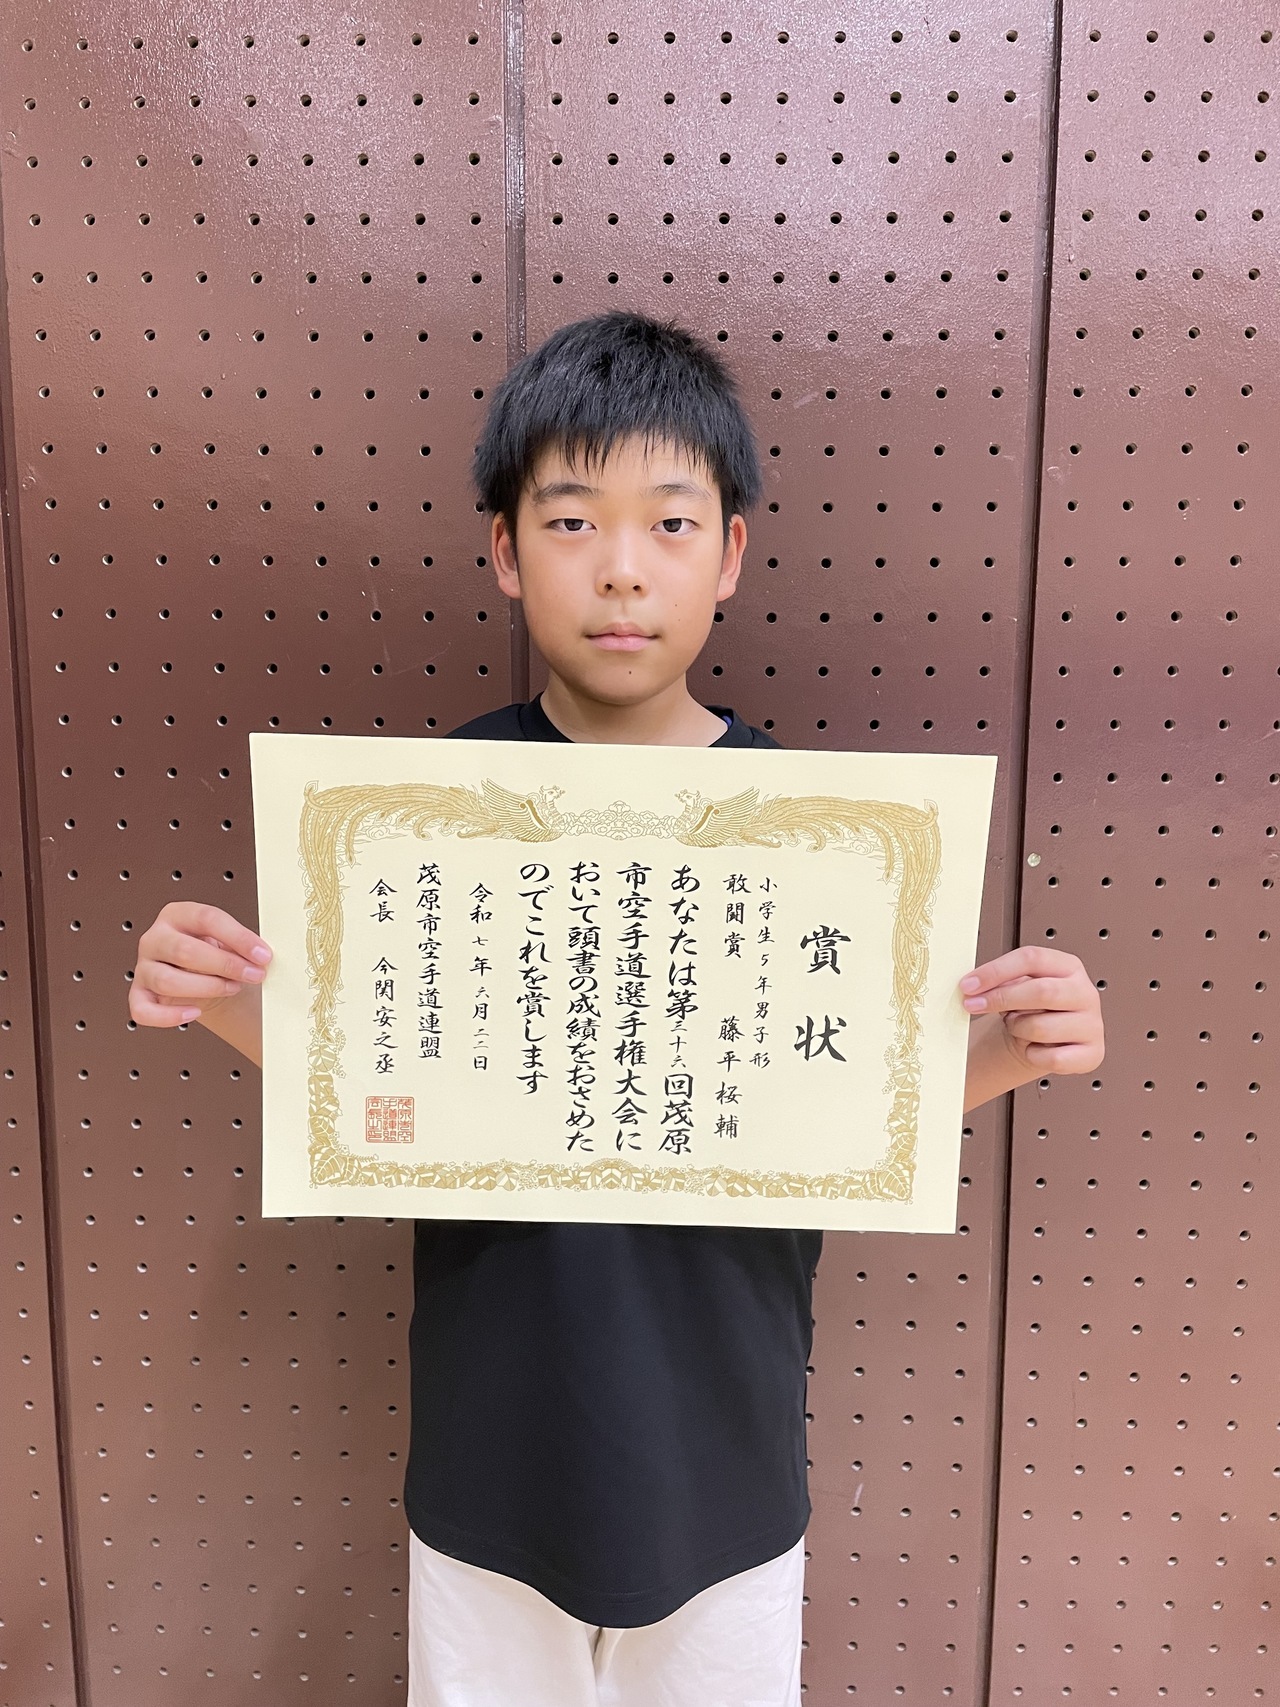 賞状
小学生5年男子形
敢闘賞 藤平桜輔
あなたは第三十六回茂原
市空手道選手権大会に
おいて頭書の成績をおさめた
のでこれを賞します
令和七年六月二二日
茂原市空手道連盟
会長 今関安之丞